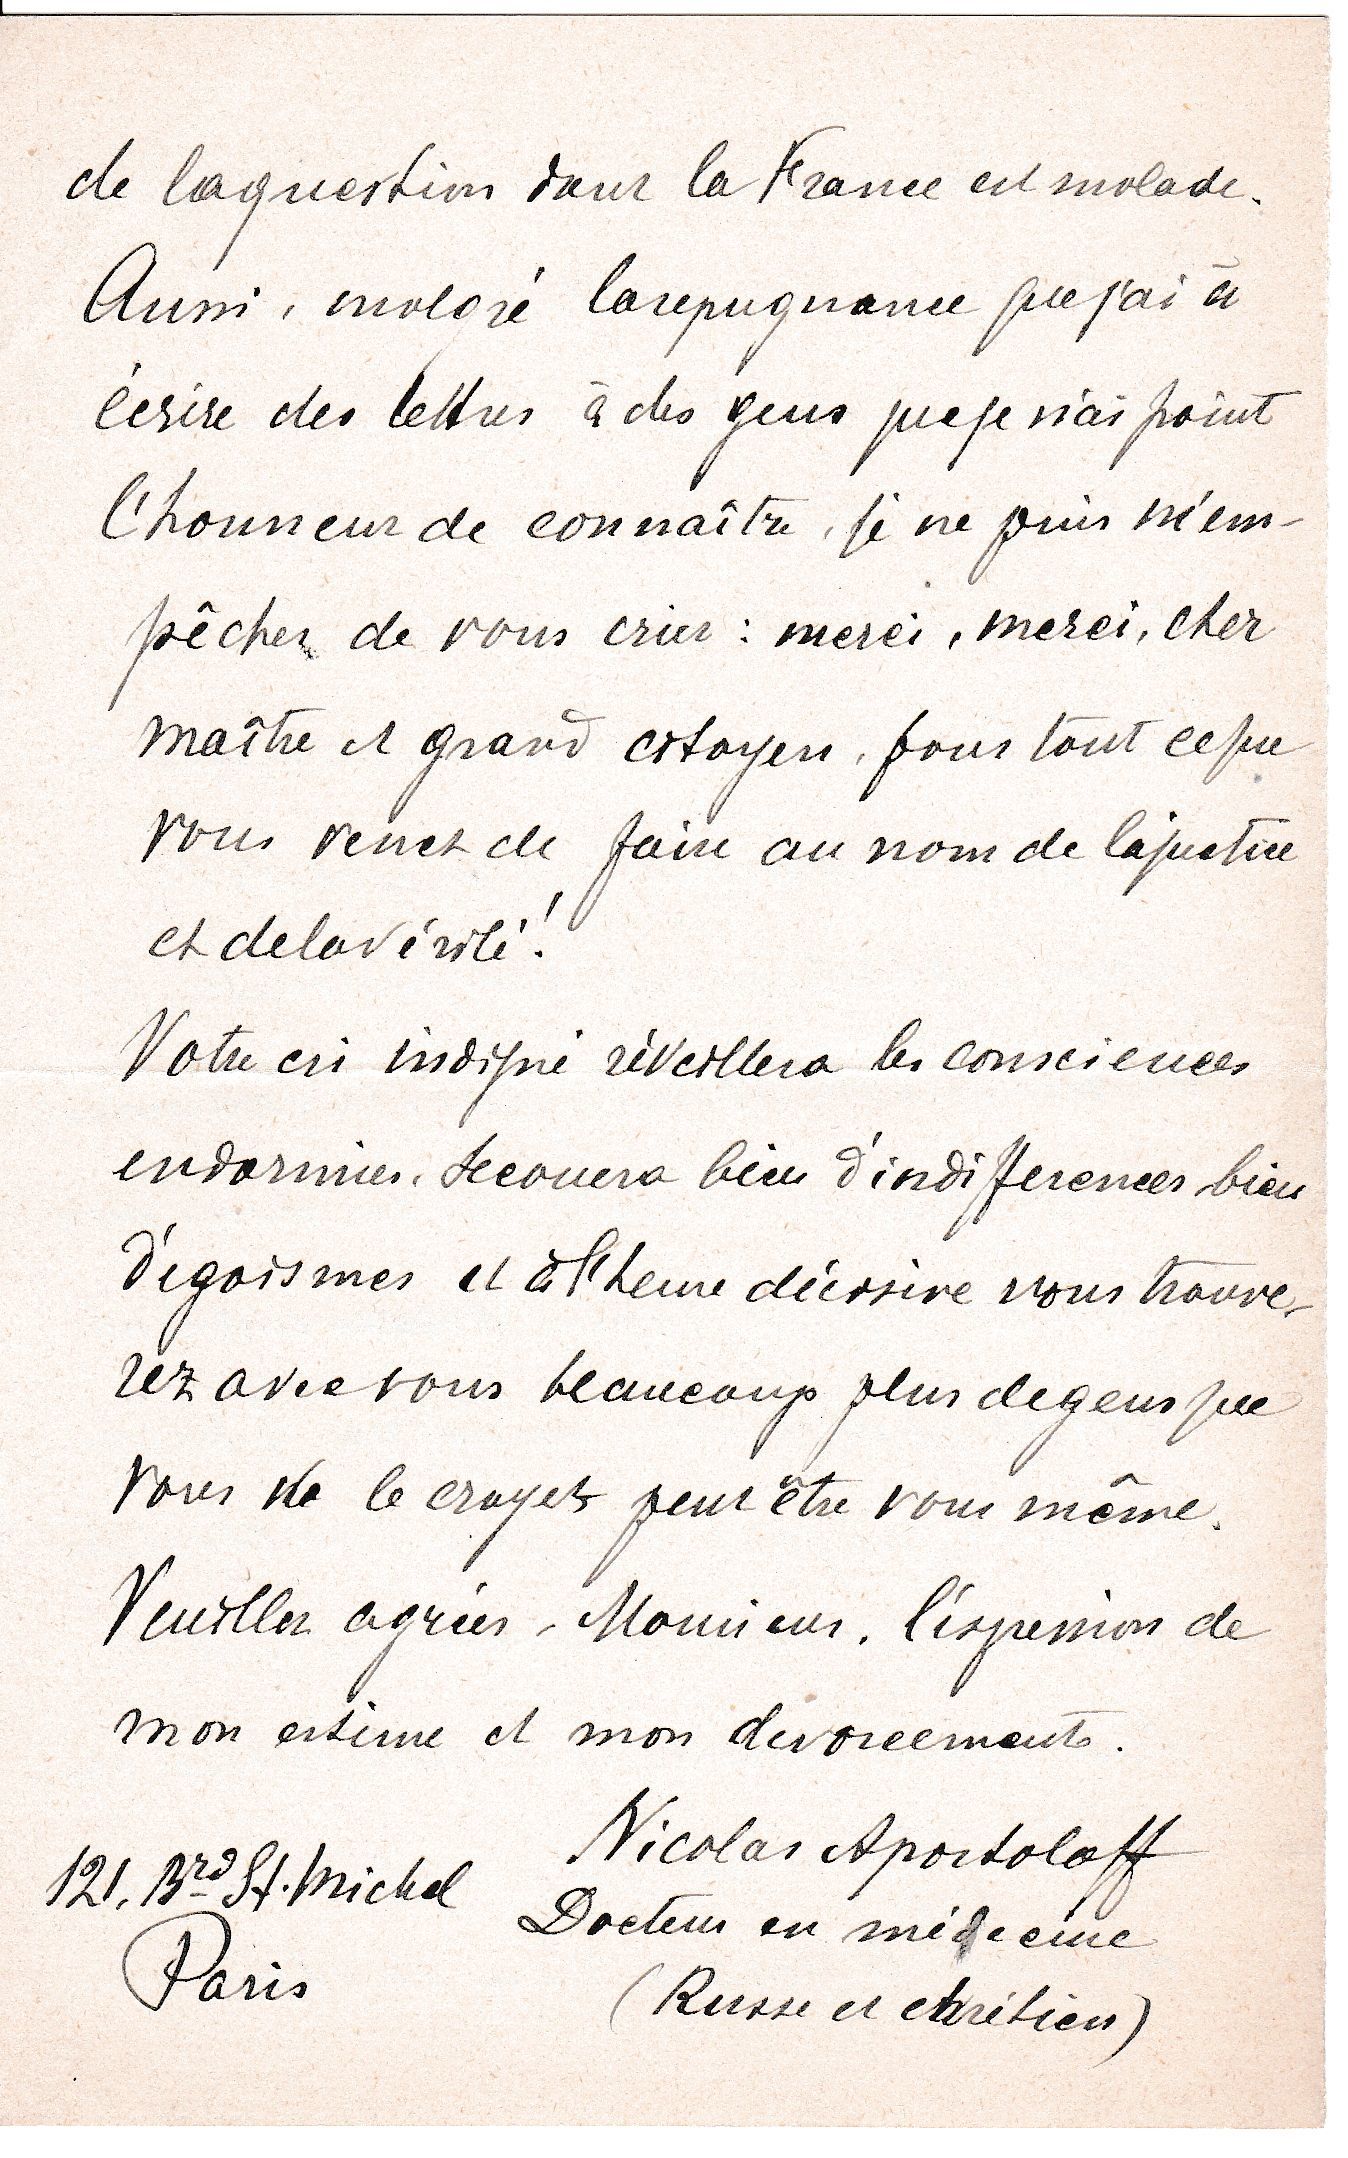 de la question dont la France est malade.
Aussi, malgré la repugnance que j'ai à
écrire des lettres à des gens que je n'ai point
l'honneur de connaître, je ne puis m'em-
pêcher de vous crier : merci, merci, cher
maître et grand citoyen, pour tout ce que
vous venez de faire au nom de la justice
et de la vérité!
Votre cri indigné réveillera les consciences
endormies, secouera bien d'indifferences bien
d'égoismes et à l'heure décisive vous trouve-
rez avec vous beaucoup plus de gens que
vous ne le croyez peut être vous même.
Veuillez agréer, Monsieur, l'expession de
mon estime et mon devoueement.
Nicolas Apostoloff
121, Brd St. Michel
Docteur en médecine
Paris
(Russe et chrétien)